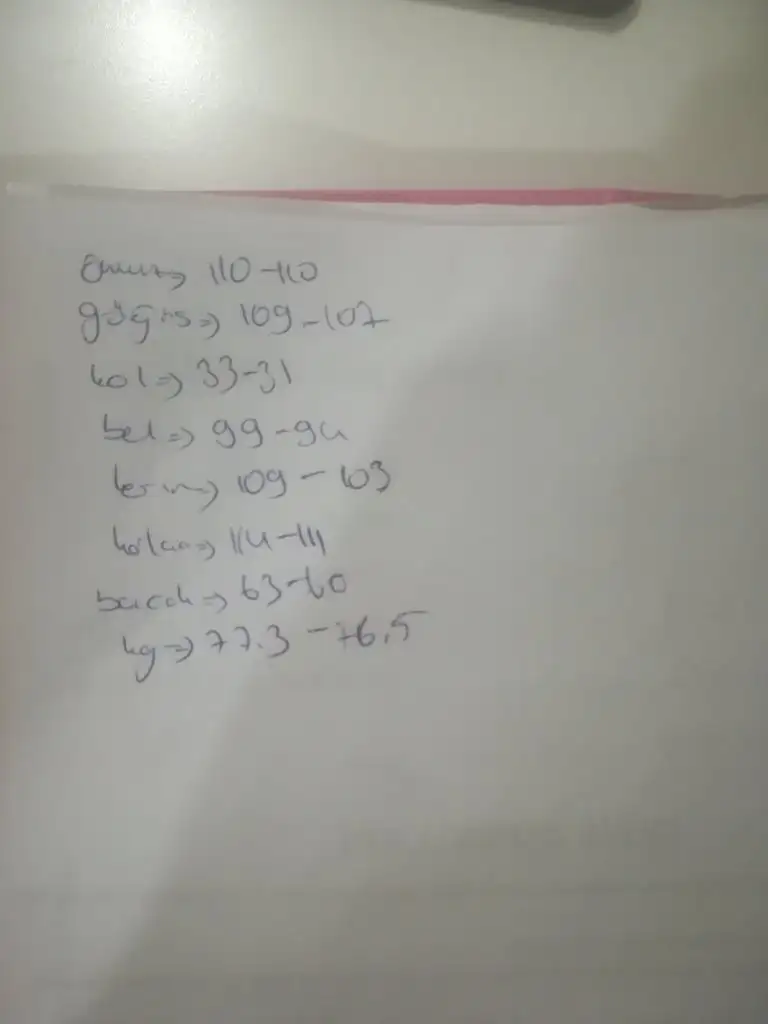 Omuz => 110-110
göğüs => 109-107
kol => 33-31
bel => 99-94
karın => 109-103
kalça => 114-111
bacak => 63-60
kg => 77.3-76.5